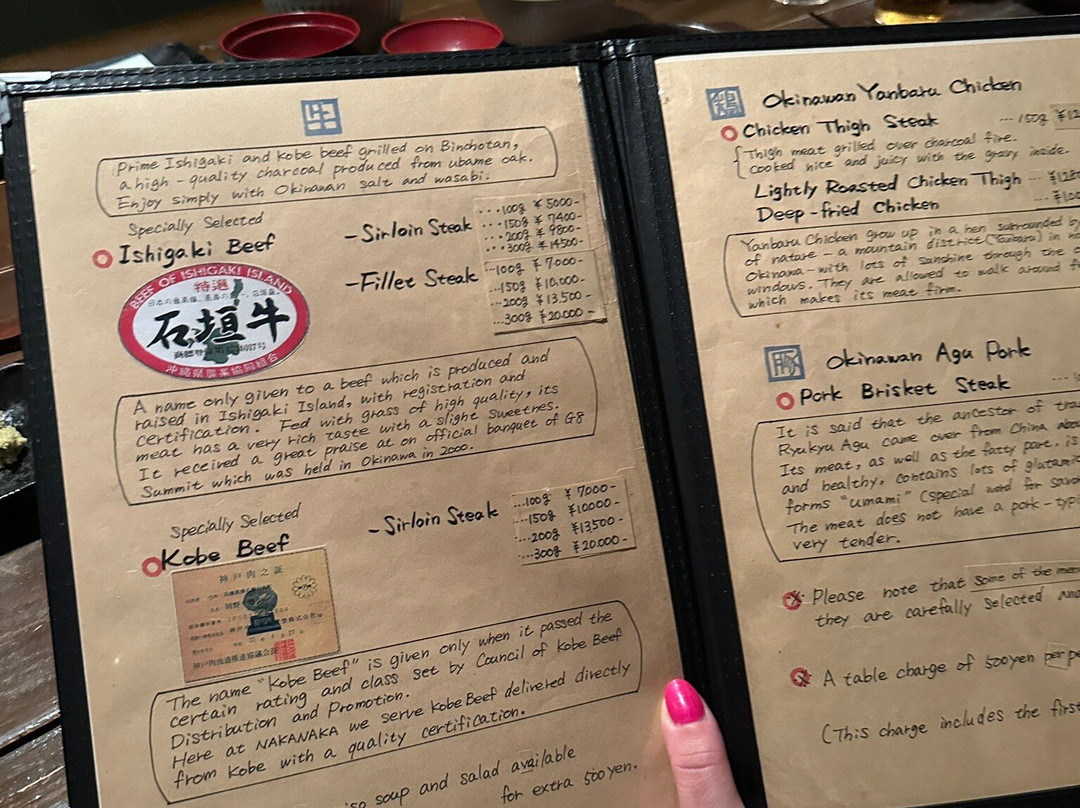 Prime Ishigaki and Kobe beef grilled on Binchotan,
a high-quality charcoal produced from ubame oak.
Enjoy simply with Okinawan salt and wasabi.
Specially Selected
Ishigaki Beef
BEEF OF ISHIGAKI ISLAND
特選
石垣牛
沖縄県農業協同組合
-Sirloin Steak
...100g ¥5000-
...150g ¥7400-
...200g ¥9800-
...300g ¥14500-
-Fillet Steak
...100g ¥7,000-
...150g ¥10,000-
...200g ¥13,500-
...300g ¥20,000-
A name only given to a beef which is produced and
raised in Ishigaki Island, with registration and
certification. Fed with grass of high quality, its
meat has a very rich taste with a slight sweetnes.
It received a great praise at on official banquet of G8
Summit which was held in Okinawa in 2000.
Specially Selected
Kobe Beef
神戸肉之証
神戸肉流通推進協議会
-Sirloin Steak
...100g ¥7000-
...150g ¥10000-
...200g ¥13500-
...300g ¥20,000-
The name "Kobe Beef" is given only when it passed the
certain rating and class set by Council of Kobe Beef
Distribution and Promotion.
Here at NAKANAKA we serve Kobe Beef delivered directly
from Kobe with a quality certification.
soup and salad available
for extra 500yen.
鶏 Okinawan Yanbaru Chicken
Chicken Thigh Steak ...150g
Thigh meat grilled over charcoal fire.
cooked nice and juicy with the gravy inside.
Lightly Roasted Chicken Thigh
Deep-fried Chicken
Yanbaru Chicken grow up in a hen surrounded by
of nature - a mountain district (Yanbaru) in
Okinawa - with lots of sunshine through the
windows. They are allowed to walk around
which makes its meat firm.
豚 Okinawan Agu Pork
Pork Brisket Steak
It is said that the ancestor of
Ryukyu Agu came over from China
Its meat, as well as the fatty part, is
and healthy, contains lots of
forms "umami" (special word for
The meat does not have a pork-
very tender.
Please note that some of the
they are carefully selected
A table charge of 500yen per
(This charge includes the first